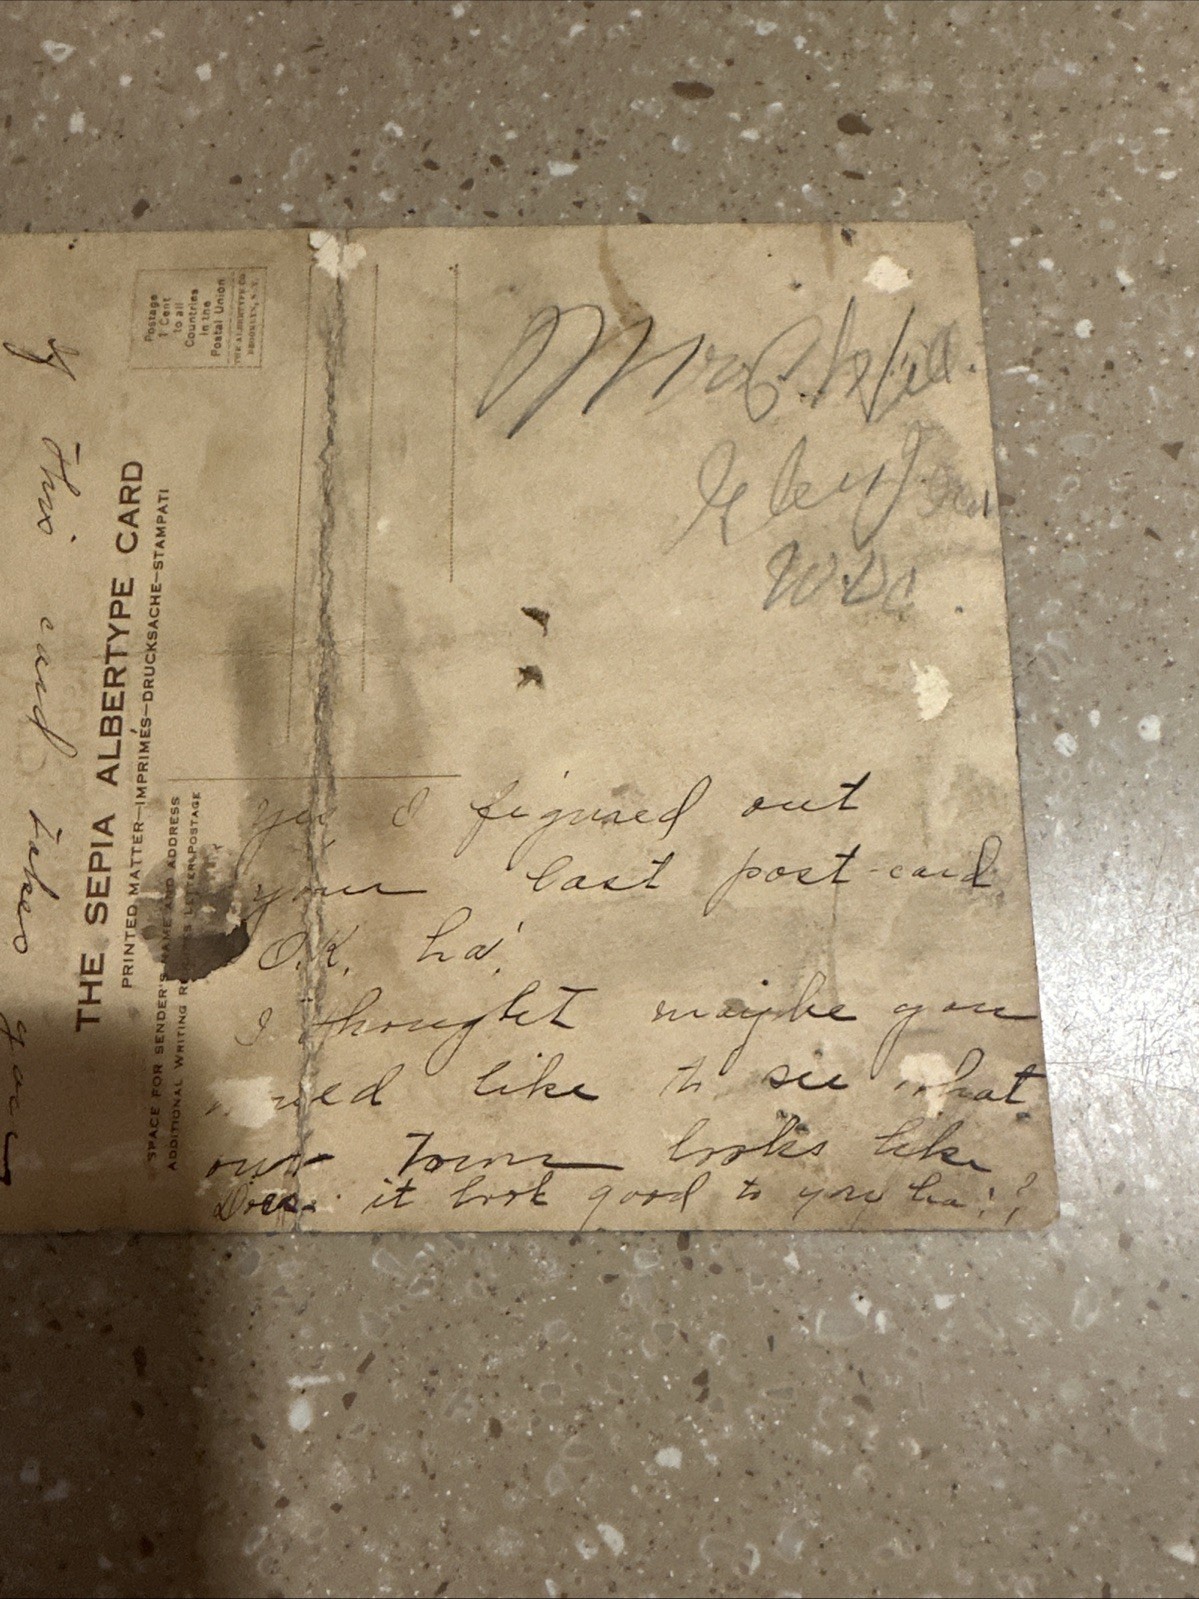 If this card takes
THE SEPIA ALBERTYPE CARD
PRINTED MATTER—IMPRIMÉS—DRUCKSACHE—STAMPATI
SPACE FOR SENDER'S NAME AND ADDRESS
ADDITIONAL WRITING REQUIRES LETTER POSTAGE
Postage
1 Cent
to all
Countries
in the
Postal Union
THE ALBERTYPE CO.
BROOKLYN, N.Y.
Mrs
Wis.
yes I figured out
your last post-card
O.K. ha!
I thought maybe you
like to see what
our Town looks like
Does it look good to you ha!?